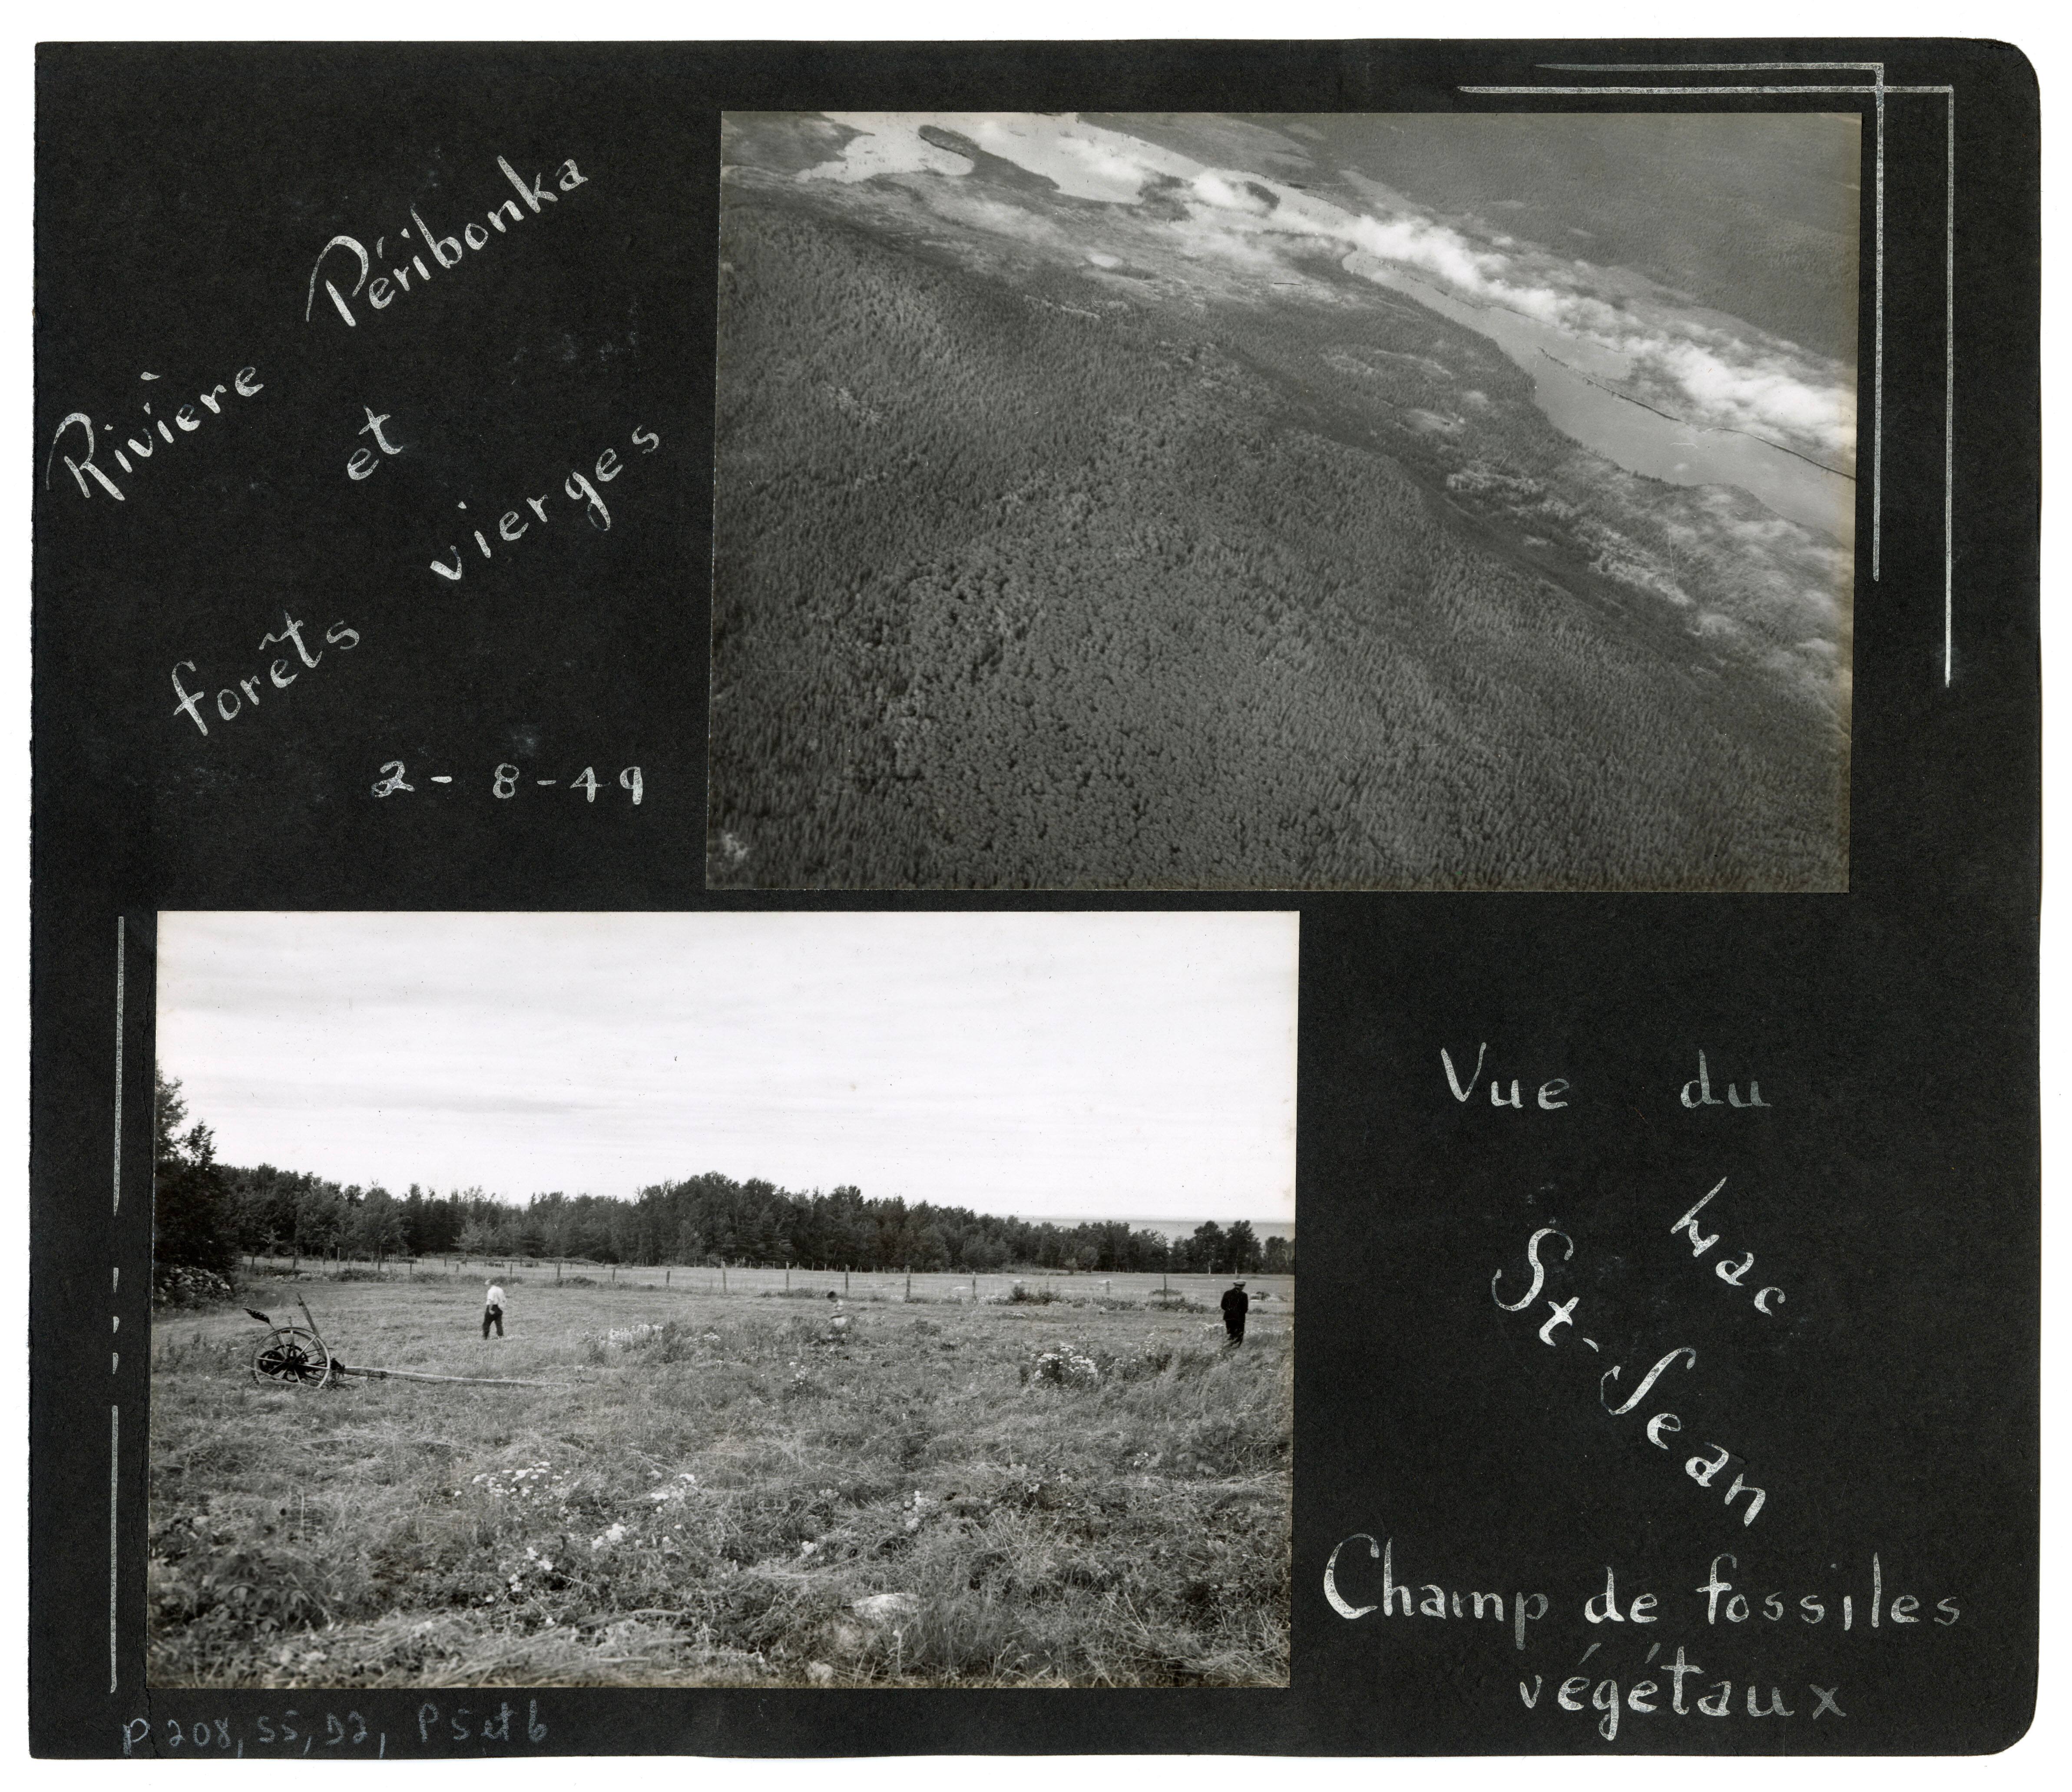 Rivière Péribonka
et
forêts vierges
2-8-49
Vue du
Lac
St-Jean
Champ de fossiles
végétaux
P208, S5, D2, P5 et 6